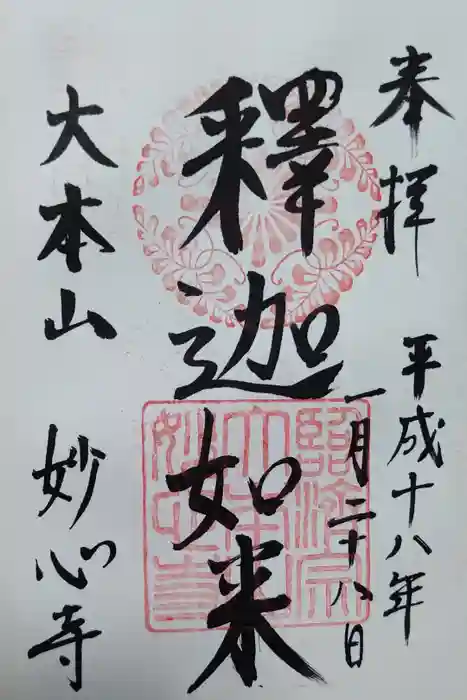 奉拝
平成十八年
一月二十八日
釋迦如来
大本山 妙心寺